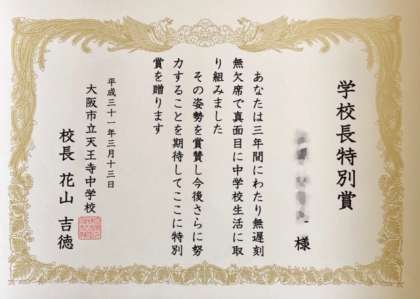 学校長特別賞
様
あなたは三年間にわたり無遅刻
無欠席で真面目に中学校生活に取
り組みました
その姿勢を賞賛し今後さらに努
力することを期待してここに特別
賞を贈ります
平成三十一年三月十三日
大阪市立天王寺中学校
校長 花山 吉徳